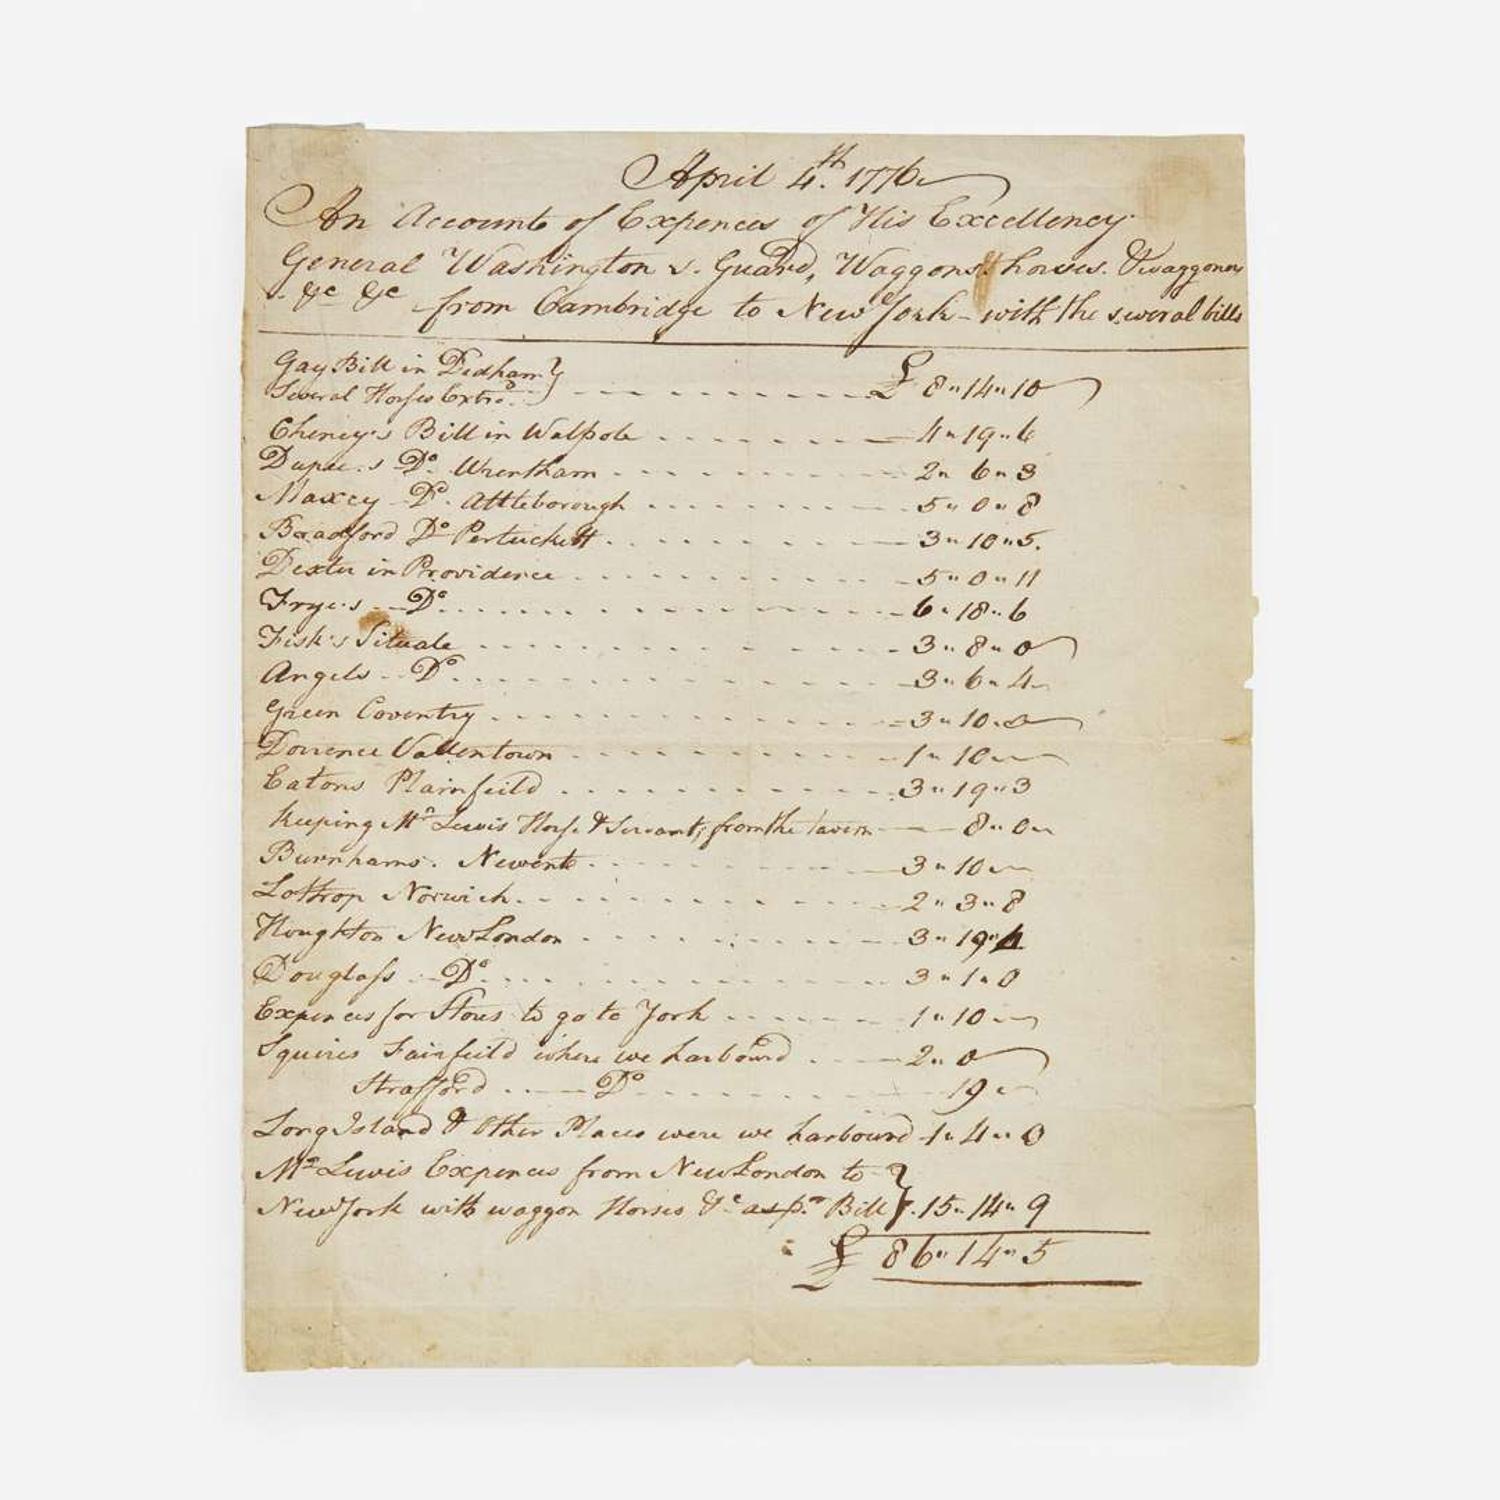 April 4.th 1776
An Account of Expences of His Excellency
General Washington & Guard, Waggons & horses. & waggoners
&c &c from Cambridge to New York - with the several bills
Gay Bill in Dedham
Several Horses Extro. £ 8 " 14 " 10
Cheney's Bill in Walpole 4 " 19 " 6
Dupee's Do. Wrentham 2 " 6 " 3
Maxcy Do. Attleborough 5 " 0 " 8
Bradford Do Pertuckett 3 " 10 " 5.
Dexter in Providence 5 " 0 " 11
Frye's Do 6 " 18 " 6
Fisk's Situate 3 " 8 " 0
Angels Do. 3 " 6 " 4
Green Coventry 3 " 10 " 0
Dorrence Vallentown 1 " 10 "
Eatons Plainfeild 3 " 19 " 3
Keeping Mr Lewis Horse & Servants from the tavern 8 " 0
Burnhams. Newent 3 " 10
Lothrop Norwich 2 " 3 " 8
Houghton New London 3 " 19 "
Douglass Do. 3 " 1 " 0
Expences for Stores to go to York 1 " 10
Squires Fairfeild where we harboured 2 " 0
Strafford Do 19
Long Island & Other Places were we harboured 1 " 4 " 0
Mr Lewis Expences from New London to
New York with waggon Horses &c as pr Bill 15 " 14 " 9
£ 86 " 14 " 5